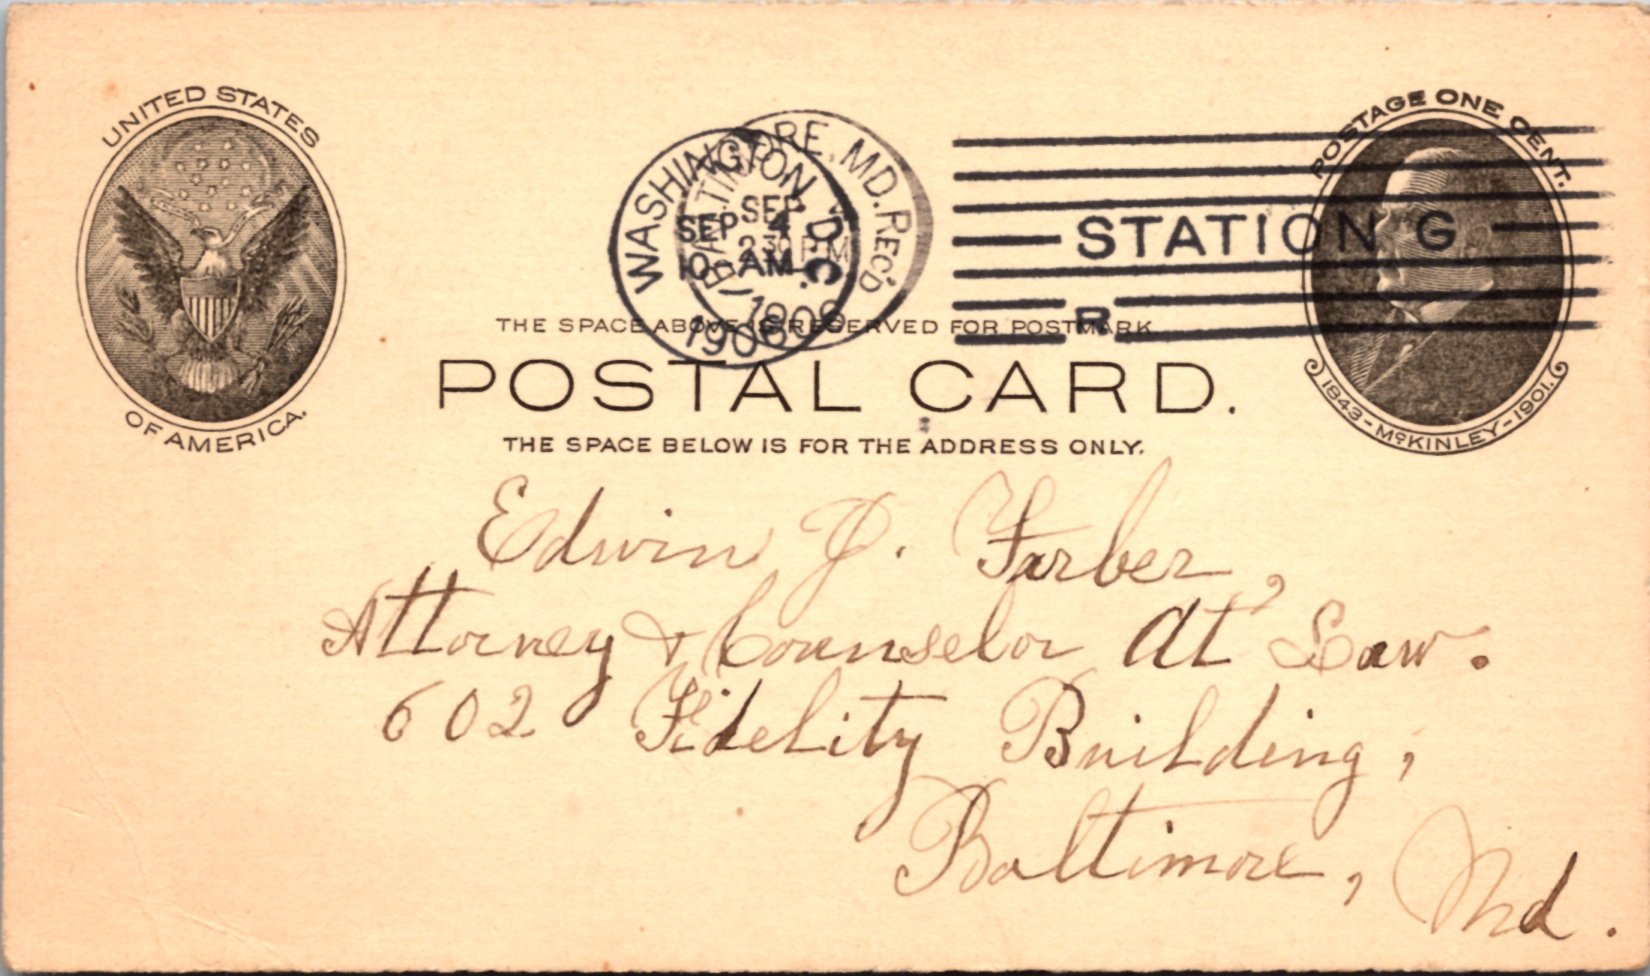 UNITED STATES
OF AMERICA.
WASHINGTON, D.C.
SEP 4
10-AM
1906
BALTIMORE, MD. REC'D
SEP 4
2 30 PM
1906
STATION G
R
POSTAGE ONE CENT.
1843-McKINLEY-1901.
THE SPACE ABOVE IS RESERVED FOR POSTMARK
POSTAL CARD.
THE SPACE BELOW IS FOR THE ADDRESS ONLY.
Edwin J. Farber,
Attorney & Counselor At Law.
602 Fidelity Building,
Baltimore, Md.